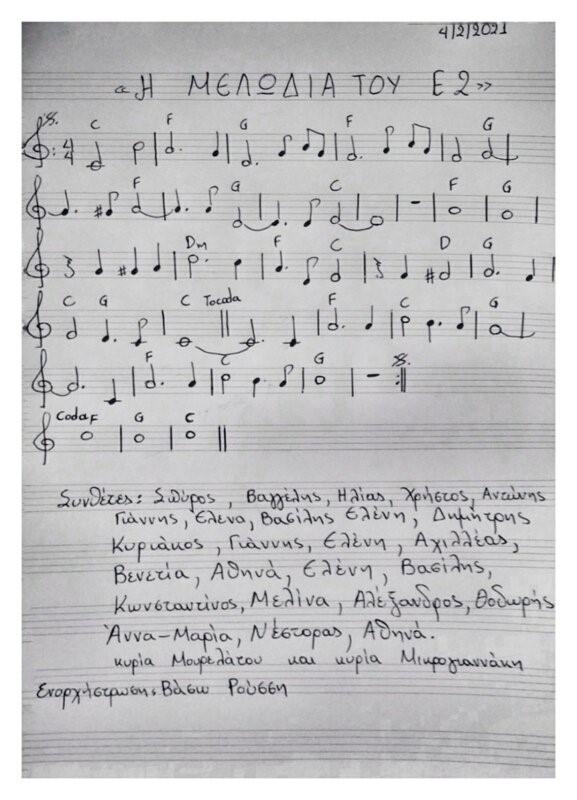 4/2/2021
«Η ΜΕΛΩΔΙΑ ΤΟΥ Ε2»
C F G F G
F G C F G
Dm F C D G
C G C Tocada F C G
F C G
Coda F G C
Συνθέτες: Σπύρος, Βαγγέλης, Ηλίας, Χρήστος, Αντώνης
Γιάννης, Έλενα, Βασίλης Ελένη, Δημήτρης
Κυριάκος, Γιάννης, Ελένη, Αχιλλέας,
Βενετία, Αθηνά, Ελένη, Βασίλης,
Κωνσταντίνος, Μελίνα, Αλέξανδρος, Θοδωρής
Άννα-Μαρία, Νέστορας, Αθηνά.
κυρία Μουρελάτου και κυρία Μικρογιαννάκη
Ενορχήστρωση: Βάσω Ρούσση